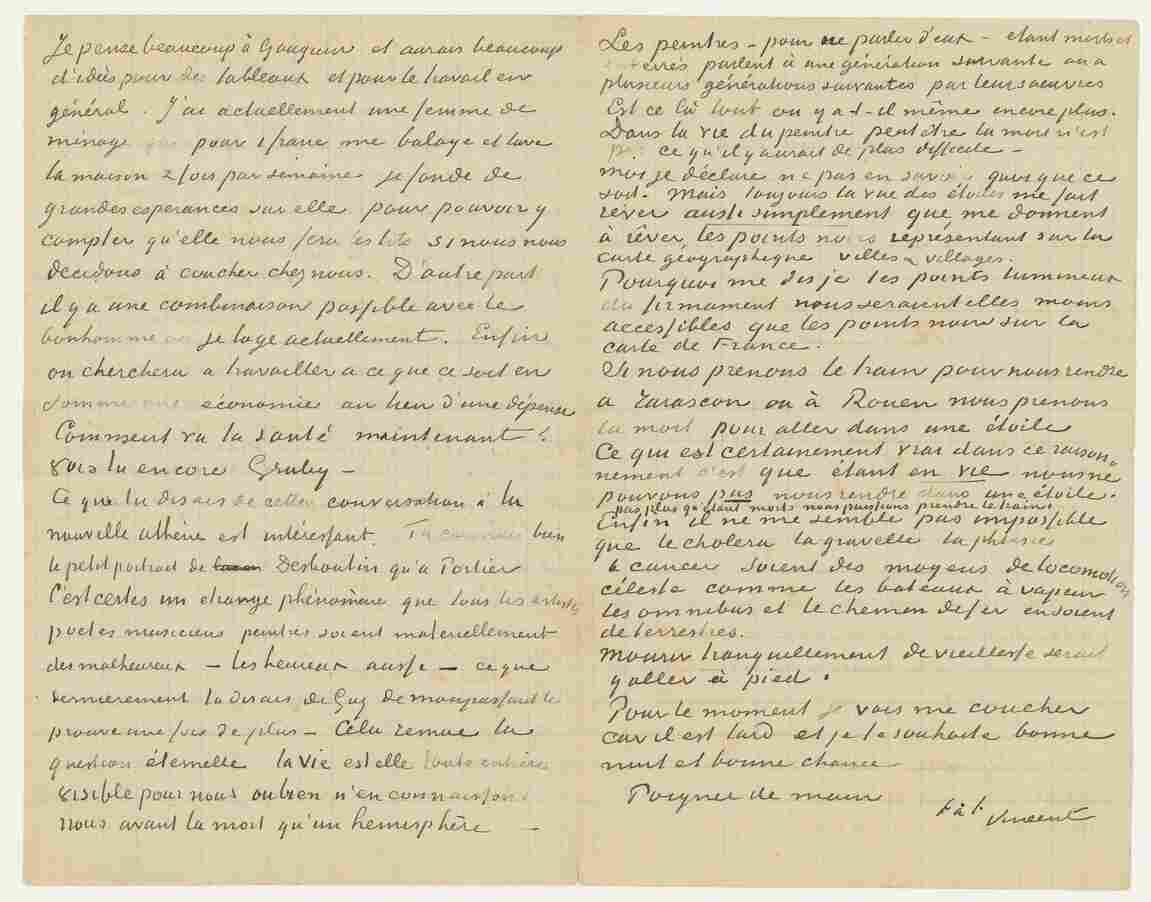 Je pense beaucoup à Gauguin et aurais beaucoup
d'idées pour des tableaux et pour le travail en
général. J'ai actuellement une femme de
ménage qui pour 1 franc me balaye et lave
la maison 2 fois par semaine je fonde de
grandes esperances sur elle pour pouvoir y
compter qu'elle nous fera les lits si nous nous
decidons à coucher chez nous. D'autre part
il y a une combinaison possible avec le
bonhomme où je loge actuellement. Enfin
on cherchera a travailler a ce que ce soit en
somme une économie au lieu d'une dépense
Comment va ta santé maintenant?
vois tu encore Gruby –
Ce que tu disais de cette conversation à la
nouvelle athène est intéressant. Tu connais bien
le petit portrait de Desboutin qu'a Portier
C'est certes un etrange phénomène que tous les artistes
poetes musiciens peintres soient materiellement
des malheureux – les heureux aussi – ce que
dernierement tu disais de Guy de maupassant le
prouve une fois de plus – Cela remue la
question éternelle la vie est elle toute entière
visible pour nous ou bien n'en connaissons
nous avant la mort qu'un hemisphère –
Les peintres – pour ne parler d'eux – etant morts et
enterrés parlent à une génération suivante ou a
plusieurs générations suivantes par leurs oeuvres
Est ce là tout ou y a-t-il même encore plus.
Dans la vie du peintre peut être la mort n'est
pas ce qu'il y aurait de plus difficile –
moi je déclare ne pas en savoir quoi que ce
soit. Mais toujours la vue des étoiles me fait
rêver aussi simplement que me donnent
à rêver les points noirs représentant sur la
carte géographique villes & villages.
Pourquoi me dis je les points lumineux
du firmament nous seraient elles moins
accessibles que les points noirs sur la
carte de France.
Si nous prenons le train pour nous rendre
a Tarascon ou à Rouen nous prenons
la mort pour aller dans une étoile
Ce qui est certainement vrai dans ce raison-
nement c'est que étant en vie nous ne
pouvons pas nous rendre dans une étoile.
pas plus qu'étant morts nous puissions prendre le train.
Enfin il ne me semble pas impossible
que le cholera la gravelle la phtisie
le cancer soient des moyens de locomotion
céleste comme les bateaux à vapeur
les omnibus et le chemin de fer en soient
de terrestres.
Mourir tranquillement de vieillesse serait
y aller à pied.
Pour le moment je vais me coucher
car il est tard et je te souhaite bonne
nuit et bonne chance
Poignee de main
t. à t.
Vincent